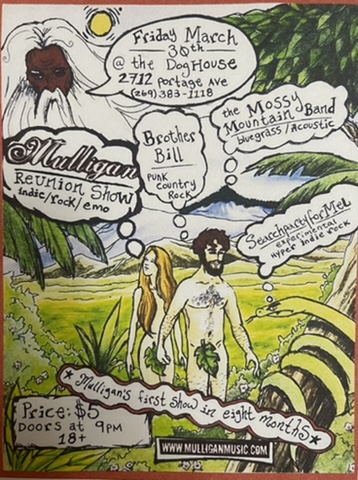 Friday March
30th
@ the DogHouse
2712 Portage Ave
(269) 383-1118
the Mossy
Mountain Band
bluegrass/acoustic
Brother
Bill
Punk
Country
Rock
Mulligan
Reunion Show
indie/rock/emo
Searchparty/forMel
experimental
hyper indie rock
★ Mulligan's first show in eight months ★
Price: $5
Doors at 9PM
18+
WWW.MULLIGANMUSIC.COM